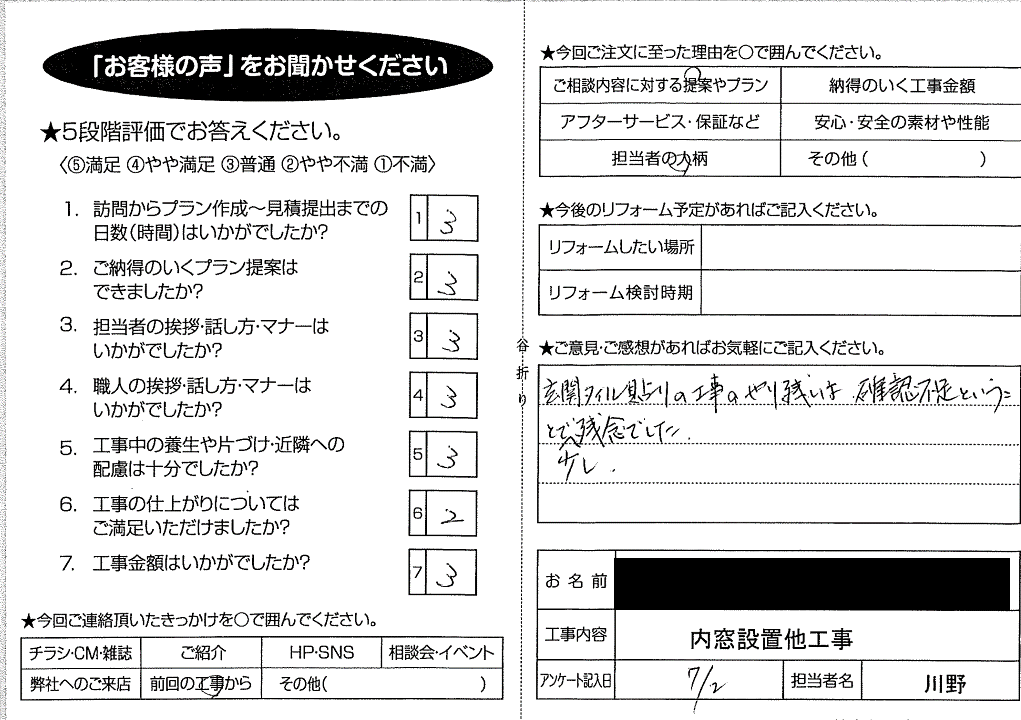 「お客様の声」をお聞かせください
★5段階評価でお答えください。
〈⑤満足 ④やや満足 ③普通 ②やや不満 ①不満〉
1. 訪問からプラン作成～見積提出までの
日数(時間)はいかがでしたか?
1 3
2. ご納得のいくプラン提案は
できましたか?
2 3
3. 担当者の挨拶・話し方・マナーは
いかがでしたか?
3 3
4. 職人の挨拶・話し方・マナーは
いかがでしたか?
4 3
5. 工事中の養生や片づけ・近隣への
配慮は十分でしたか?
5 3
6. 工事の仕上がりについては
ご満足いただけましたか?
6 2
7. 工事金額はいかがでしたか?
7 3
★今回ご連絡頂いたきっかけを○で囲んでください。
チラシ・CM・雑誌 ご紹介 HP・SNS 相談会・イベント
弊社へのご来店 前回の工事から その他( )
谷折り
★今回ご注文に至った理由を○で囲んでください。
ご相談内容に対する提案やプラン 納得のいく工事金額
アフターサービス・保証など 安心・安全の素材や性能
担当者の人柄 その他( )
★今後のリフォーム予定があればご記入ください。
リフォームしたい場所
リフォーム検討時期
★ご意見・ご感想があればお気軽にご記入ください。
玄関タイル貼りの工事のやり残しは、確認不足というこ
とで残念でした。
少し.
お名前
工事内容 内窓設置他工事
アンケート記入日 7/2 担当者名 川野